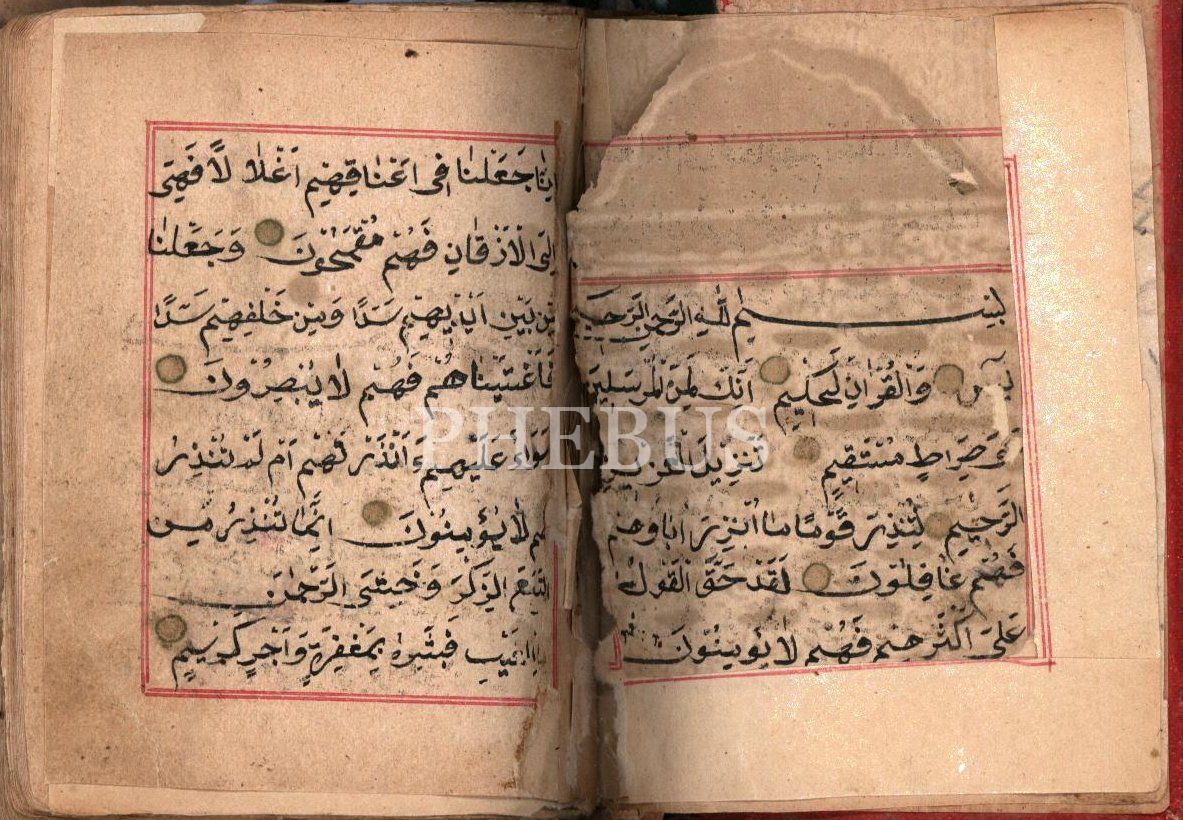 بِسْمِ اللهِ الرَّحْمٰنِ الرَّحِيمِ
يٰسٓ وَالْقُرْاٰنِ الْحَكِيمِ اِنَّكَ لَمِنَ الْمُرْسَلِينَ
عَلٰى صِرَاطٍ مُسْتَقِيمٍ تَنْزِيلَ الْعَزِيزِ
الرَّحِيمِ لِتُنْذِرَ قَوْمًا مَا اُنْذِرَ اٰبَاؤُهُمْ
فَهُمْ غَافِلُونَ لَقَدْ حَقَّ الْقَوْلُ
عَلٰى اَكْثَرِهِمْ فَهُمْ لَا يُؤْمِنُونَ
اِنَّا جَعَلْنَا فِى اَعْنَاقِهِمْ اَغْلَالًا فَهِىَ
اِلَى الْاَذْقَانِ فَهُمْ مُقْمَحُونَ وَجَعَلْنَا
مِنْ بَيْنِ اَيْدِيهِمْ سَدًّا وَمِنْ خَلْفِهِمْ سَدًّا
فَاَغْشَيْنَاهُمْ فَهُمْ لَا يُبْصِرُونَ
وَسَوَاءٌ عَلَيْهِمْ ءَاَنْذَرْتَهُمْ اَمْ لَمْ تُنْذِرْ
هُمْ لَا يُؤْمِنُونَ اِنَّمَا تُنْذِرُ مَنِ
اتَّبَعَ الذِّكْرَ وَخَشِىَ الرَّحْمٰنَ
بِالْغَيْبِ فَبَشِّرْهُ بِمَغْفِرَةٍ وَاَجْرٍ كَرِيمٍ
PHEBUS